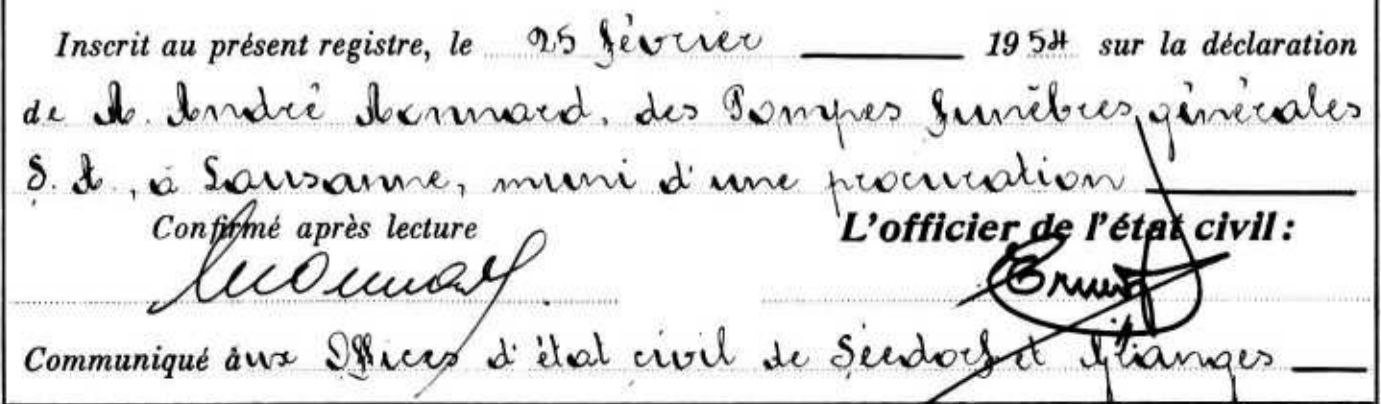 Inscrit au présent registre, le 25 février 1954 sur la déclaration
de M. André Monnard, des Pompes funèbres générales
S. A., à Lausanne, muni d'une procuration
Confirmé après lecture L'officier de l'état civil:
Monnard
Communiqué aux Offices d'état civil de Seedorf et Granges